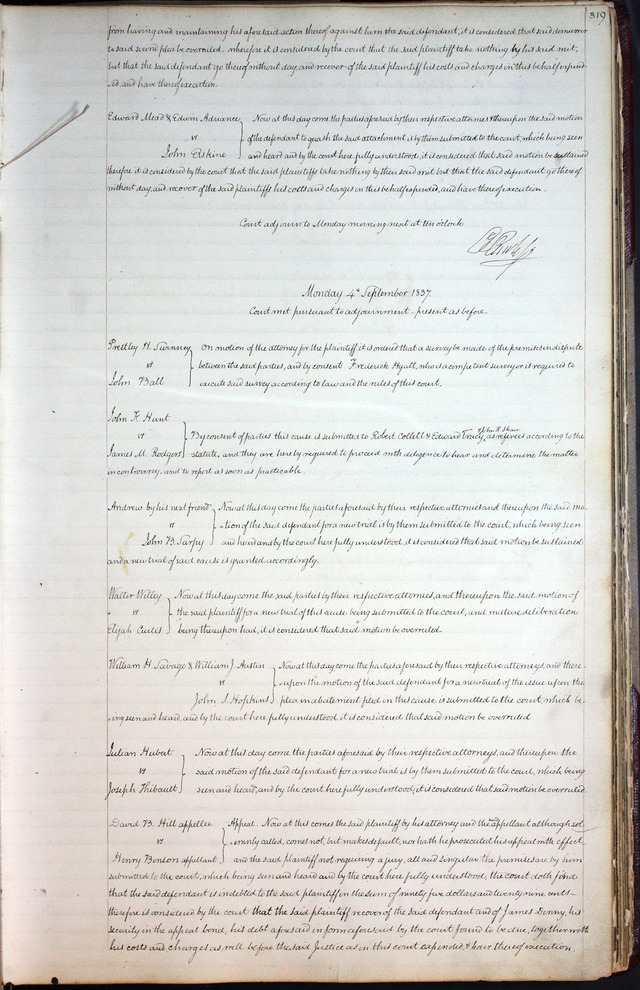 319
from having and maintaining his aforesaid action thereof against him the said defendant, it is considered that said demurrer
to said second plea be overruled. wherefore it is considered by the court that the said plaintiff take nothing by his said writ,
but that the said defendant go thereof without day, and recover of the said plaintiff his costs and charges in this behalf expend-
ed, and have thereof execution.
Edward Mead & Edwin Advance Now at this day come the parties aforesaid by their respective attornies & thereupon the said motion
vs of the defendant to quash the said attachment is by them submitted to the court, which being seen
John Erskine and heard and by the court here fully understood, it is considered that said motion be sustained
therefore it is considered by the court that the said plaintiffs take nothing by their said writ but that the said defendant go thereof
without day, and recover of the said plaintiffs his costs and charges in this behalf expended, and have thereof execution.
Court adjourn to Monday morning next at ten o'clock
Monday 4th September 1837.
Court met pursuant to adjournment - present as before.
Prettley H. Swinney On motion of the attorney for the plaintiff it is ordered that a survey be made of the premises in dispute
vs between the said parties, and by consent Frederick Hyatt, who is a competent surveyor is required to
John Ball execute said survey according to law and the rules of this court.
John K Hunt
vs By consent of parties this cause is submitted to Robert Collett & Edward Tracy, & John R Shaw as referees according to the
James M. Rodgers statute, and they are hereby required to proceed with diligence to hear and determine the matter
in controversy, and to report as soon as practicable.
Andrew by his next friend Now at this day come the parties aforesaid by their respective attornies and thereupon the said mo-
vs tion of the said defendant for a new trial is by them submitted to the court, which being seen
John B. Sarpy and heard and by the court here fully understood, it is considered that said motion be sustained
and a new trial of said cause is granted accordingly.
Walter Willey Now at this day come the said parties by their respective attornies, and thereupon the said motion of
vs the said plaintiff for a new trial of this cause being submitted to the court, and mature deliberation
Elijah Curtis being thereupon had, it is considered that said motion be overruled.
William H. Savage & William J. Austin Now at this day come the parties aforesaid by their respective attorneys, and there-
vs upon the motion of the said defendant for a new trial of the issue upon the
John S. Hopkins plea in abatement pled in this cause is submitted to the court, which be-
ing seen and heard, and by the court here fully understood it is considered that said motion be overruled
Julian Hubert Now at this day come the parties aforesaid by their respective attorneys, and thereupon the
vs said motion of the said defendant for a new trial is by them submitted to the court, which being
Joseph Thibault seen and heard, and by the court here fully understood, it is considered that said motion be overruled.
David B. Hill appellee Appeal. Now at this comes the said plaintiff by his attorney and the appellant although sol-
vs emnly called, comes not, but makes default, nor hath he prosecuted his appeal with effect
Henry Benson appellant and the said plaintiff not requiring a jury, all and singular the premises are by him
submitted to the court, which being seen and heard and by the court here fully understood; the court doth find
that the said defendant is indebted to the said plaintiff in the sum of ninety five dollars and twenty nine cents -
therefore is considered by the court that the said plaintiff recover of the said defendant and of James Denny, his
security in the appeal bond, his debt aforesaid in form aforesaid by the court found to be due, together with
his costs and charges as well before the said Justice as in this court expended, & have thereof execution